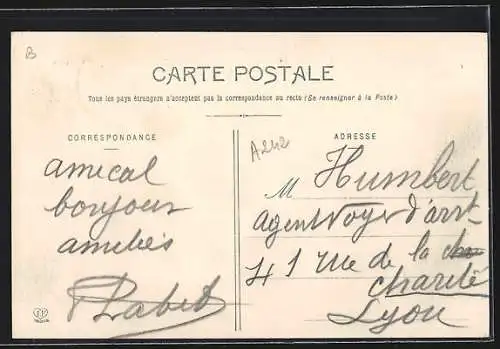 B
CARTE POSTALE
Tous les pays étrangers n'acceptent pas la correspondance au recto (Se renseigner à la Poste)
CORRESPONDANCE
amical
bonjour
amitiés
ADRESSE
A242
M Humbert
agent Voyer d'arrt
41 rue de la
charité
Lyon